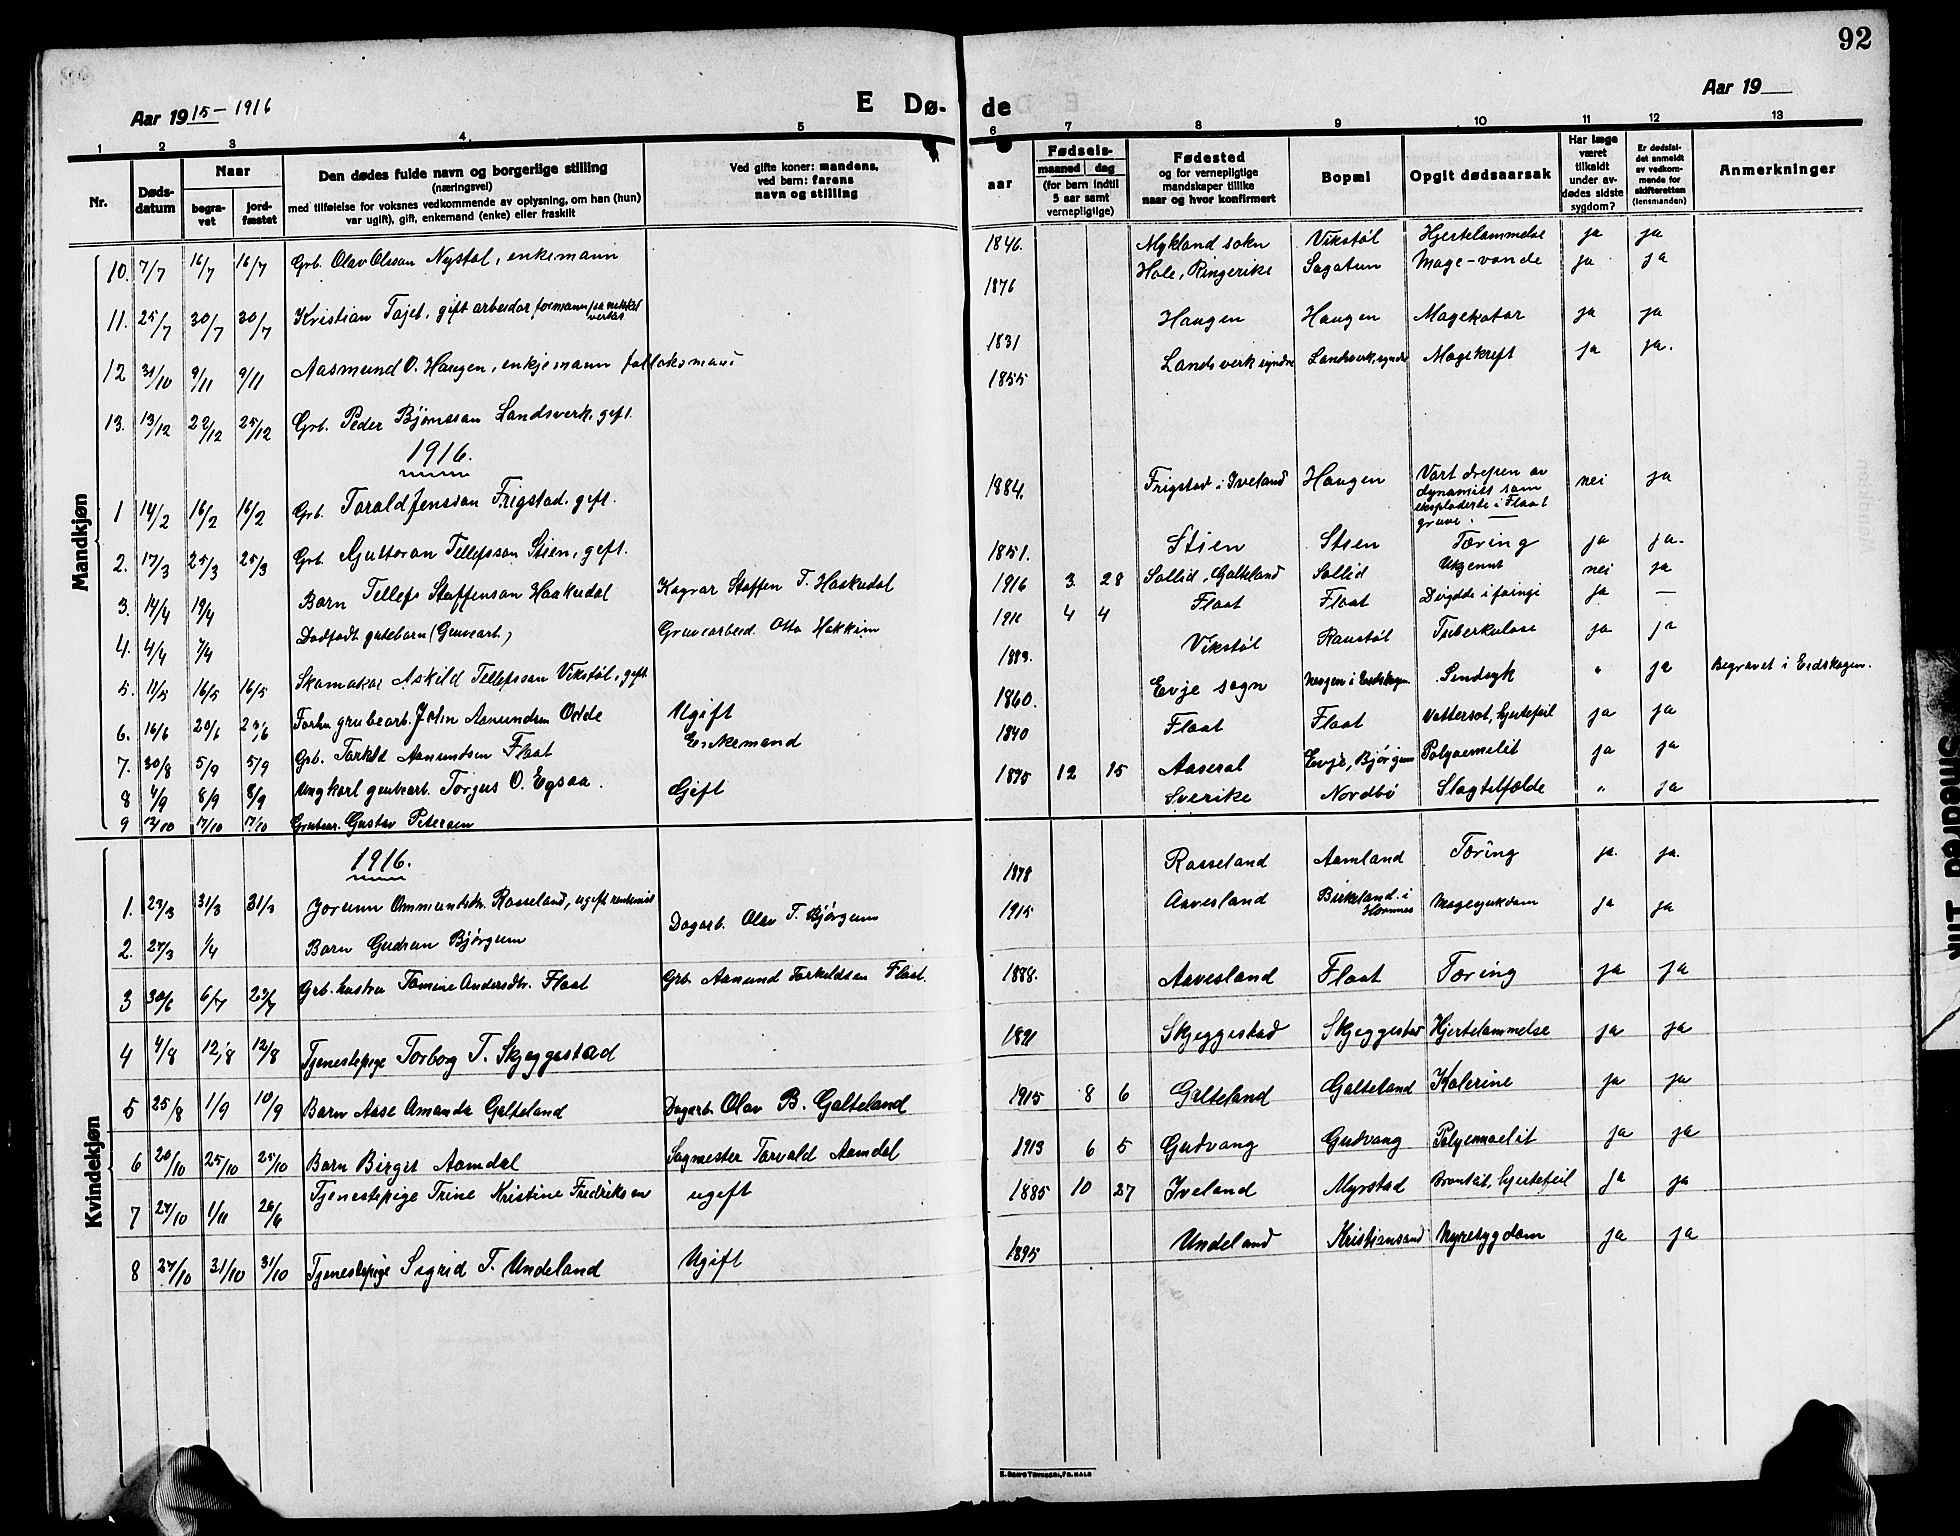 92
Aar 1915-1916
E Dø-
de
Aar 19
1 2 3 4 5 6 7 8 9 10 11 12 13
Nr.
Døds-
datum
Naar
begra-
vet
jord-
fæstet
Den dødes fulde navn og borgerlige stilling
(næringsvei)
med tilføielse for voksnes vedkommende av oplysning, om han (hun)
var ugift), gift, enkemand (enke) eller fraskilt
Ved gifte koner: mandens,
ved barn: farens
navn og stilling
Fødsels-
aar
maaned dag
(for barn indtil
5 aar samt
vernepligtige)
Fødested
og for vernepligtige
mandskaper tillike
naar og hvor konfirmert
Bopæl
Opgit dødsaarsak
Har læge
været
tilkaldt
under av-
dødes sidste
sygdom?
Er dødsfal-
det anmeldt
av vedkom-
mende for
skifteretten
(lensmanden)
Anmerkninger
Mandkjøn
10. 7/7 16/7 16/7 Grb. Olav Olsson Nystøl, enkemann 1846. Mykland sokn Vikstøl Hjertelammelse ja ja
11. 25/7 30/7 30/7 Kristian Tajet, gift arbeidar formann 1876 Hole, Ringerike Sagatun Mage-vonde ja ja
12 31/10 9/11 9/11 Aasmund O. Haugen, enkjemann 1831 Haugen Haugen Magekatar ja ja
13. 13/12 22/12 25/12 Grb. Peder Bjørnsson Landsverk, gift. 1855 Landsverk syndre Landsverk, syndre Magekreft ja ja.
1916.
1 14/2 16/2 16/2 Grb. Tarald Jensson Frigstad. gift. 1884. Frigstad i Iveland Haugen Vart drepen av
dynamitt som
eksploderte i Flaat
gruve. nei ja
2. 17/3 25/3 25/3 Grb. Guttoran Tellefsson Stien, gift. 1851. Stien Stien Tæring ja ja.
3. 14/4 19/4 Barn Tellefs Staffenson Haakedal Staffen T. Haakedal 1916 3. 28 Sollid, Galteland Sollid Ukjennt nei ja
4. 4/4 7/4 Dødfødt gutebarn (Gruvearb.) Gruvearbeid. Otto Hakkim 4 4 Flaat Flaat ja —
5. 11/5 16/5 16/5 Skomakar Askild Tellefsson Vikstøl, gift 1883. Vikstøl Raustøl Tuberkulose ja ja
6. 16/6 20/6 Forhv. grubearb. John Asmundsen Odde Ugift 1860. Evje sogn i Eidskogen Sindsyk " ja Begravet i Eidskogen.
7. 30/8 5/9 5/9 Grb. Torkild Aanundsen Flaat Enkemand 1840 Flaat Flaat Vattersot, hjertefeil ja ja
8 4/9 8/9 8/9 Ungkarl grubearb. Torgus O. Egsaa. 1895 12 15 Aaseral Evje, Bjørgum ja ja
9 17/10 17/10 Grubear. Gustav Petersen Gift Sverike Nordbø Slagtilfælde " ja
Kvindekjøn
1916.
1. 23/3 31/3 31/3 Jorunn Ommundsdr. Rosseland, ugift 1878 Rosseland Aamland Tæring ja. ja.
2. 27/3 1/4 Barn Gudrun Bjørgum Dagarb. Olav T. Bjørgum 1915 Aavesland Birkeland i
Hornnes Magesjukdom ja ja
3 30/6 6/7 23/7 Grb. hustru Tomine Andersdtr. Flaat Grb. Aanund Torkildsen Flaat. 1888. Aavesland Flaat Tæring ja ja
4 4/8 12/8 12/8 Tjenestepige Torborg T. Skjeggestad 1891 Skjeggestad Skjeggestad Hjertelammelse ja ja
5 25/8 1/9 10/9 Barn Aase Amanda Galteland Dagarb. Olav B. Galteland 1915 8 6 Galteland Galteland Kolerine ja ja
6 20/10 25/10 25/10 Barn Birgit Aamdal Sagmester Torvald Aamdal 1913 6 5 Gudvang Gudvang ja ja
7 27/10 1/11 26/6 Tjenestepige Trine Kristine Fredriksen ugift 1885 10 27 Iveland Myrstad hjertefeil ja ja
8 27/10 31/10 31/10 Tjenestepige Sigrid T. Undeland Ugift 1895 Undeland Kristiansand Nyresygdom ja ja